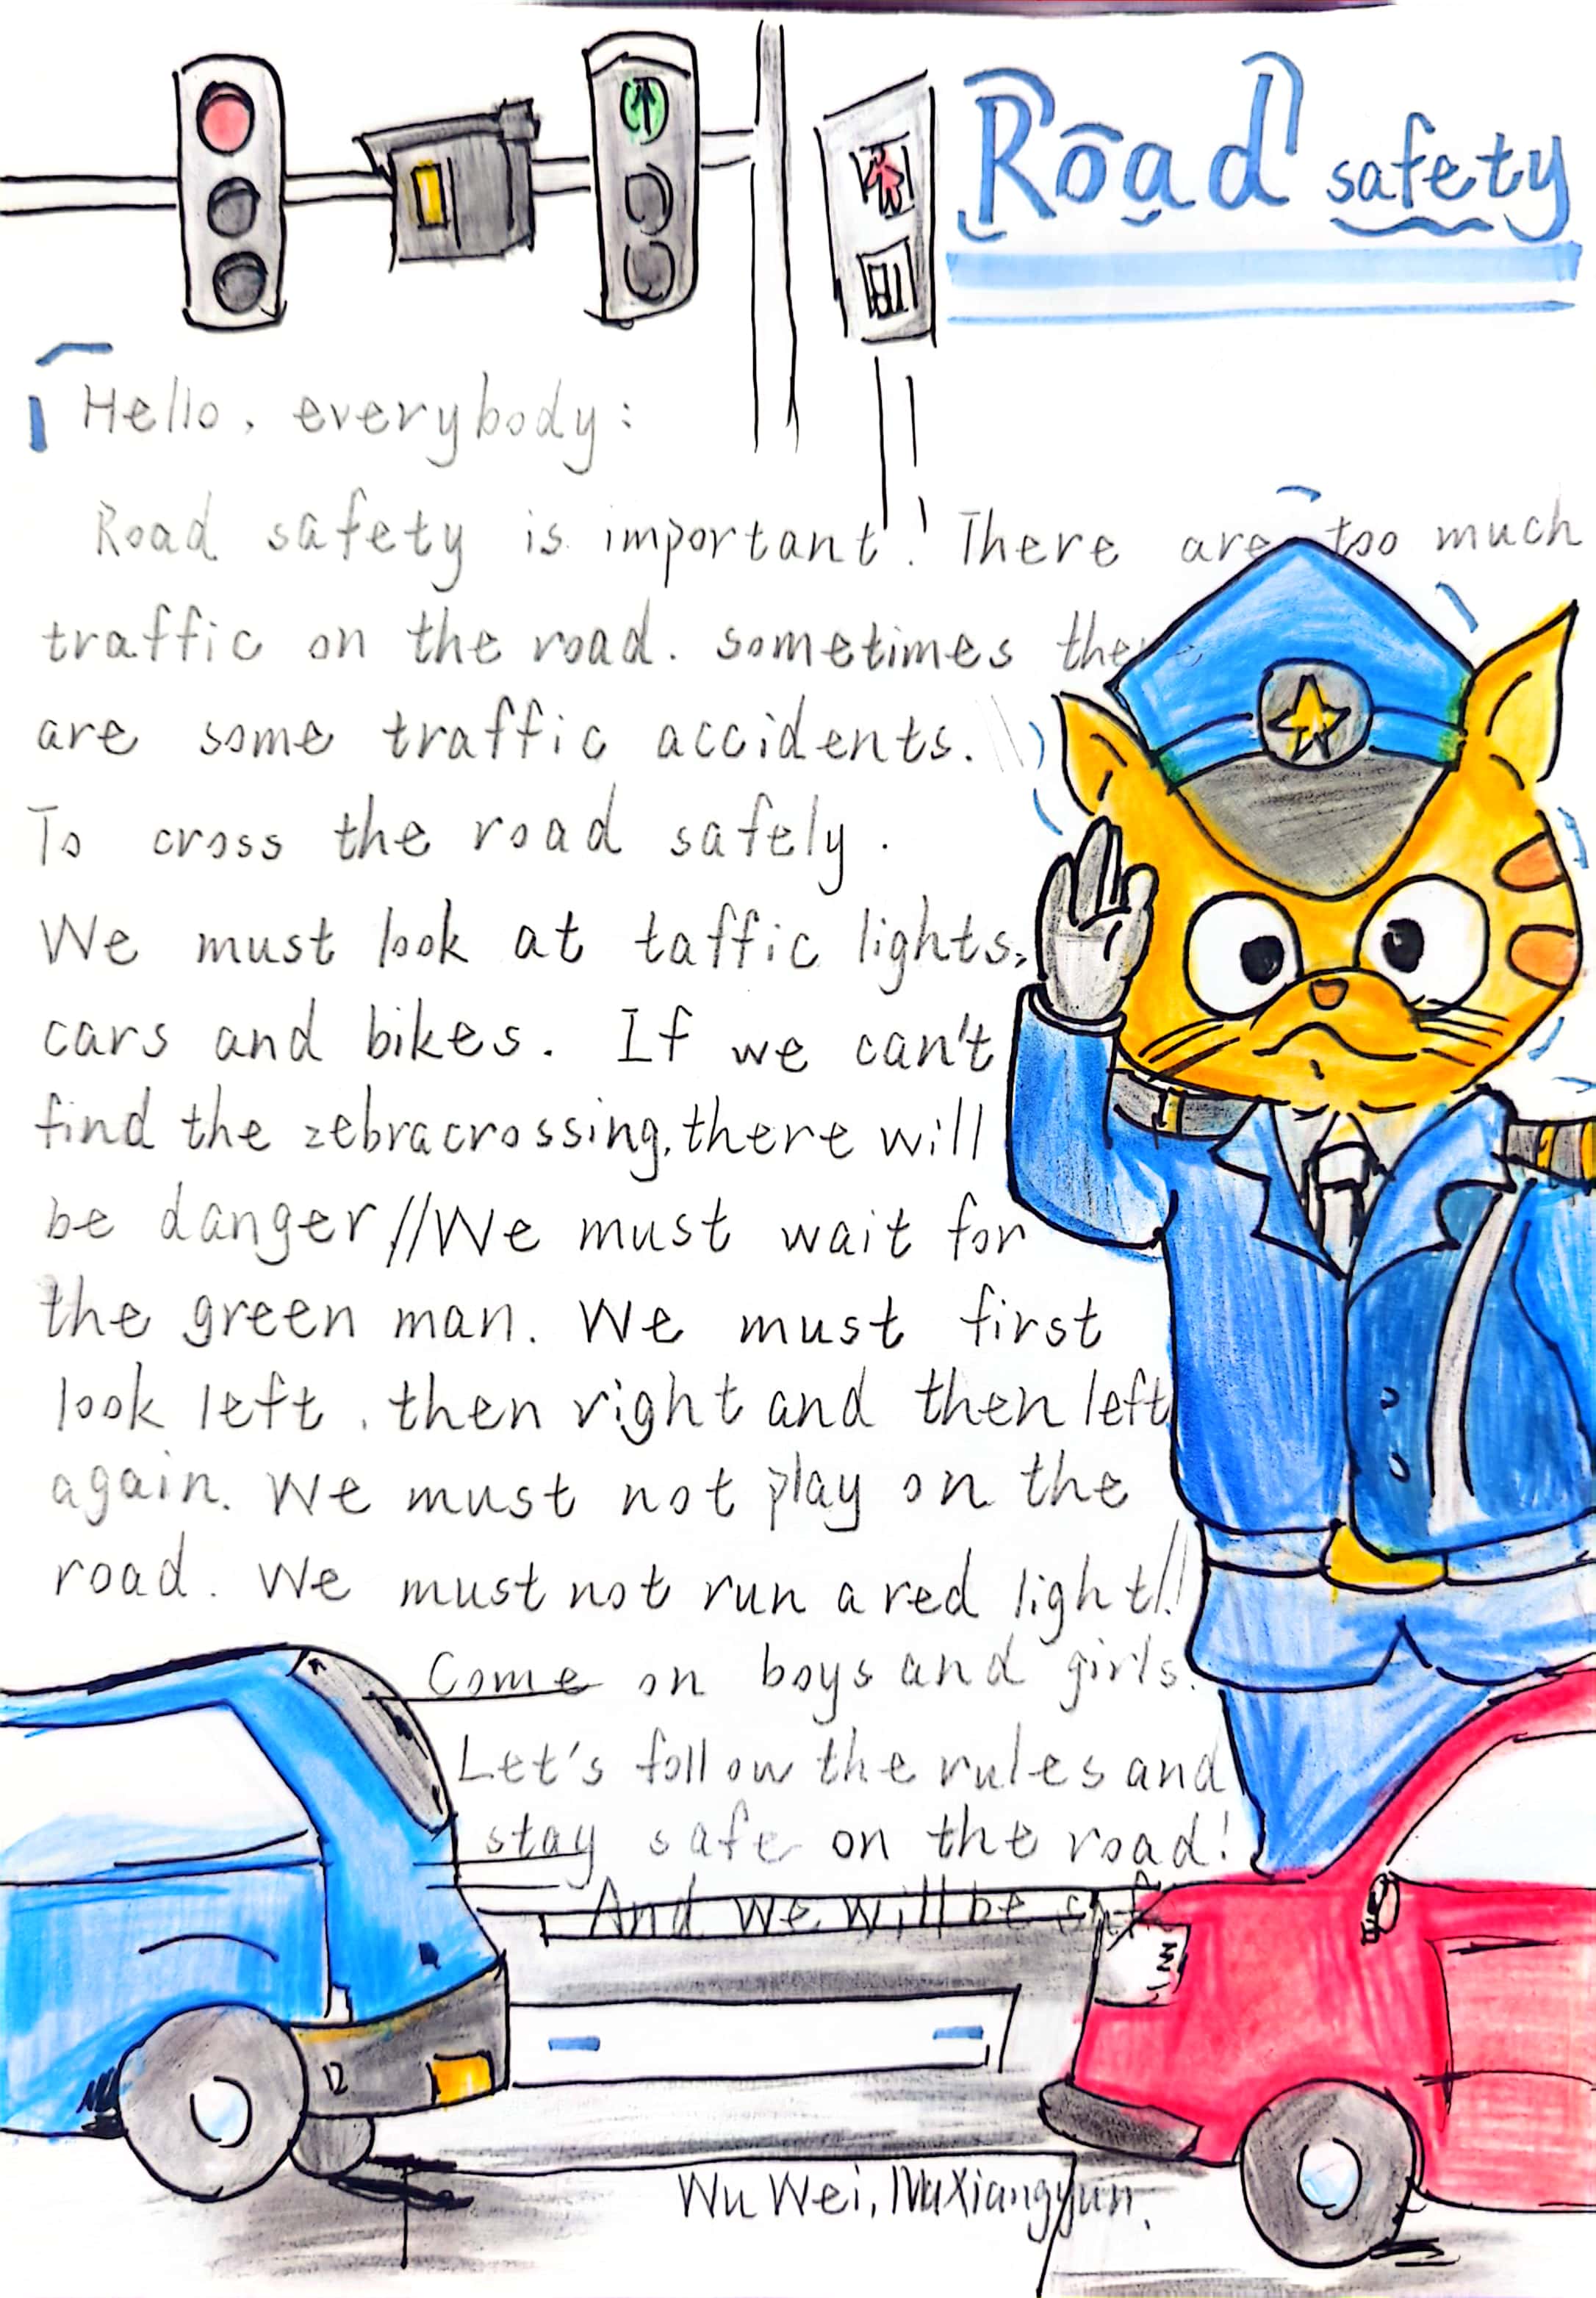 Road safety
Hello, everybody:
Road safety is important! There are too much
traffic on the road. sometimes there
are some traffic accidents.
To cross the road safely.
We must look at taffic lights,
cars and bikes. If we can't
find the zebracrossing, there will
be danger //We must wait for
the green man. We must first
look left, then right and then left
again. We must not play on the
road. We must not run a red light!!
Come on boys and girls.
Let's follow the rules and
stay safe on the road!
And we will be safe
Wu Wei,